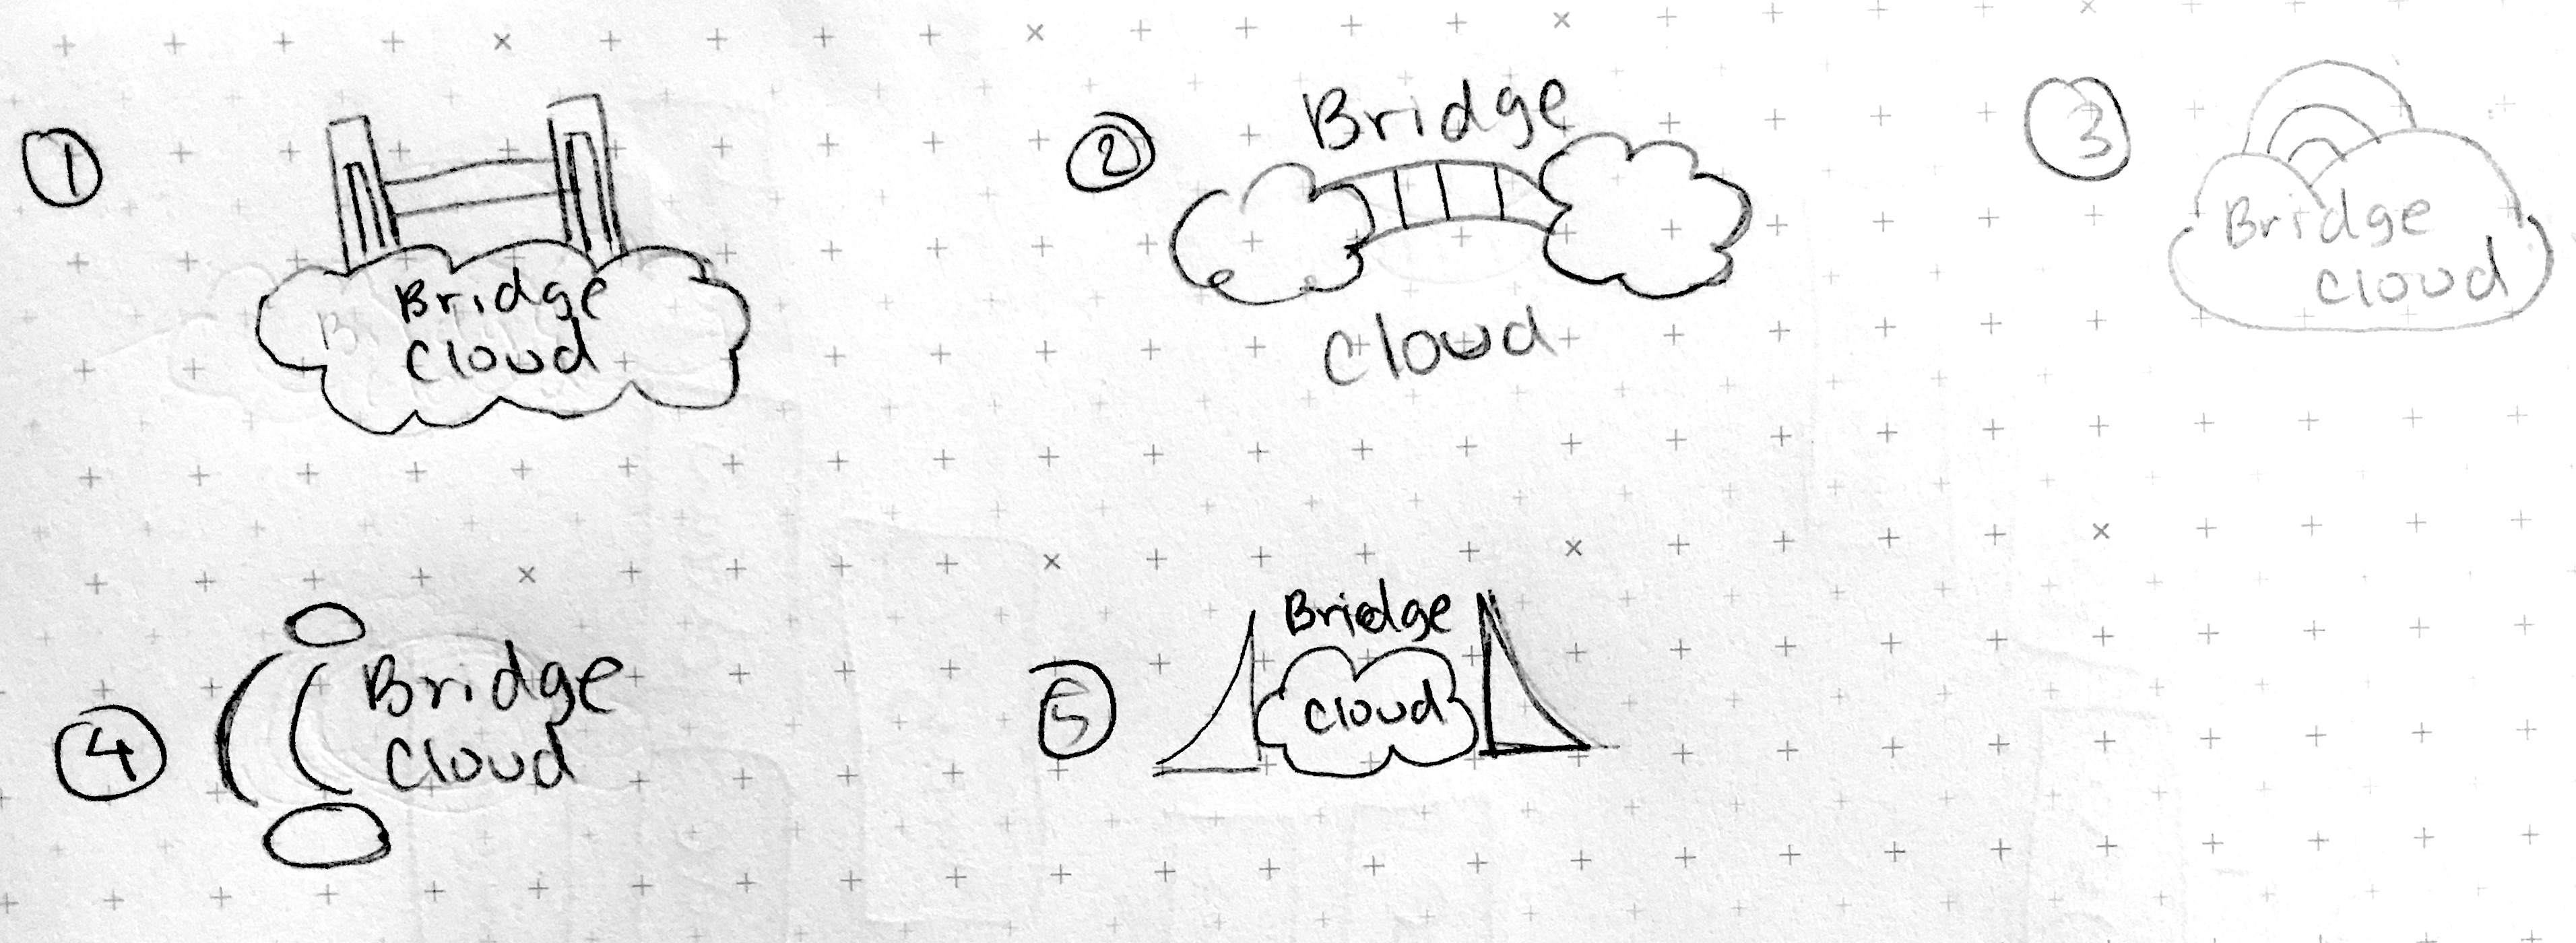 1
Bridge
Cloud
2
Bridge
Cloud
3
Bridge
Cloud
4
Bridge
Cloud
5
Bridge
Cloud